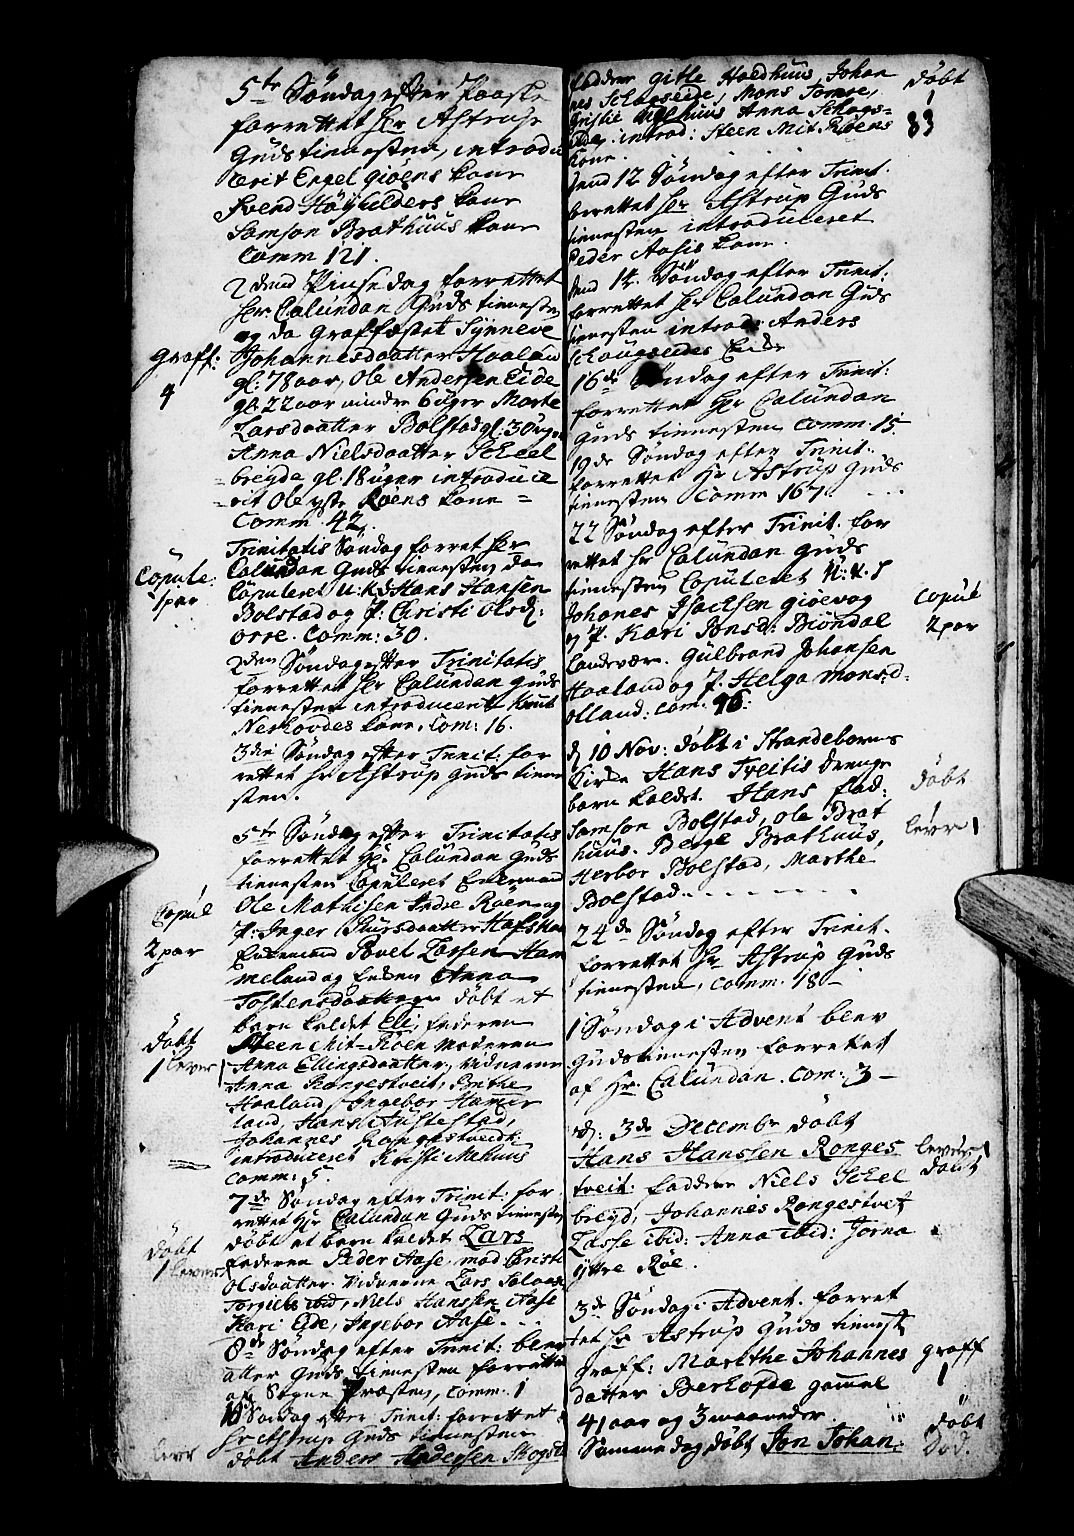 5te Søndag efter Paaske
forrettet Hr Astrup
Guds tienesten, introdu
cerit Engel Giøens kone
Svend Høyfelders kone
Samson Brathuus kone
Comm 121.
2dend Pinsedag forrettet
Hr: Calundan Guds tienesten
og da Graffæstet Synneve
Graff: Johannesdaatter Haalan
gl: 78 aar, Ole Andersen Eide
4 gl: 22 aar mindre 6 uger Marte
Larsdaatter Bolstad gl: 30 ug.
Anna Nielsdaatter Scheel
bregda gl: 18 uger introduce
rit Ole ystr Røens kone
Comm. 42.
Trinitatis Søndag forret Hr
Copule: Calundan Guds tienesten da
1 par Copuleret u: k: Hans Hansen
Bolstad og P: Christi Olsd:
Orre. Comm: 30.
2den Søndag efter Trinitatis
forrettet Hr Calundan Guds
tienesten introduceret Knut
Neskovdes kone, Com: 16.
3die Søndag efter Trinit: for
rettet Hr Astrup Guds tiene
sten.
5te Søndag efter Trinitatis
forrettet Hr. Calundan Guds
tienesten Copuleret Enkemand
Copul Ole Mathisen Indre Røen og
P: Inger Siursdaatter
2 par Enkemand Povel Larsen Ham
meland og Enken Anna
Tostensdaatter døbt et
barn kaldet Eli, faderen
døbt Steen Mit-Røen Moderen
1 lever Anna Ellingsdaatter, Vidnerne
Anna Rongestveit, Brithe
Haaland, Ingebor Hamer
land, Hans
Johannes Rongestveidt
introduceret Kristi Mehuus
Comm: 5.
7de Søndag efter Trinit: for
rettet Hr Calundan Guds tienesten
døbt døbt et barn kaldet Lars
1 lever faderen Peder Aase, mod. Christi
Olsdaatter. Vidnerne Lars
Torgiels ibid, Niels Hanssen Aase
Kari Eide, Ingebor Aase.
8de Søndag efter Trinit: blev
aller Guds tienesten forrettet
af Sogne Præsten, Comm: 1
10de Søndag efter Trinit: forrettet
Hr Astrup Guds tienesten
lever døbt Anders Andersen Skogse
faddere Gitle Hoedhuus, Johan døbt
nes Schogseide, Mons Tomre, 1
Kristie Mehuus Anna Schogs= 83
eide. introd: Steen Mit Røens
kone.
dend 12 Søndag efter Trinit.
forrettet Hr Astrup Guds
tienesten introduceret
Peder Aasis kone.
dend 14. Søndag efter Trinit:
forrettet Hr Calundan Guds
tienesten introd: Anders
Schougseides
16de Søndag efter Trinit:
forrettet Hr Calundan
Guds tienesten Comm: 15.
19de Søndag efter Trinit:
forrettet Hr Astrup Guds
tienesten Comm 167.
22 Søndag efter Trinit. for
rettet Hr Calundan Guds
tienesten Copuleret u: k:
Johanes Isachsen Giøevog Copul
og P. Kari Jonsd: Biøndal 2 par
Landevære. Gulbrand Johansen
Haaland og P. Helga Monsd:
Olland: Com. 96:
d. 10 Nov: døbt i Strandebarms
Kirke Hans Treitis drenge døbt
barn kaldet. Hans fad:
Samson Bolstad, Ole Brat lever 1
huus. Berge Brathuus,
Herbor Bolstad, Marthe
Bolstad.
24de Søndag efter Trinit.
forrettet Hr Astrup Guds
tienesten, Comm. 180
1 Søndag i Advent blev
Gudstienesten forrettet
af Hr: Calundan. Com: 3
d: 3de Decembr døbt
Hans Hanssen Ronges lever 1
tveit: faddere Niels Scheel døbt
bregd, Johannes Rongestvet
Lasse ibid: Anna ibid: Jorna
Yttre Røe.
3de Søndag i Advent. forret
tet Hr Astrup Guds tienest.
Graff: Marthe Johannes graff
datter Berkofde gamel 1
41 aar og 3 maaneder.
Samme dag døbt Jon Johan: døbt
Død.